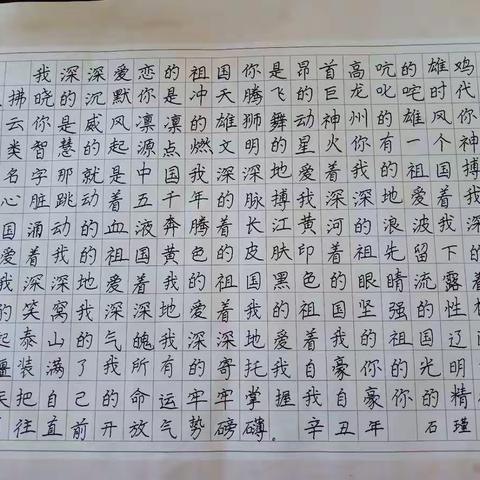 我深深爱恋的祖国你是昂首高吭的雄鸡
拂晓的沉默你是冲天腾飞的巨龙叱咤时代
云你是威风凛凛的雄狮舞动神州的雄风你
类智慧的起源点燃文明的星火你有一个神
名字那就是中国我深深地爱着我的祖国搏
心脏跳动着五千年的脉搏我深深地爱着我
国涌动的血液奔腾着长江黄河的浪波我深
爱着我的祖国黄色的皮肤印着祖先留下的
我深深地爱着我的祖国黑色的眼睛流露着
的笑窝我深深地爱着我的祖国坚强的性格
起泰山的气魄我深深地爱着我的祖国辽
疆装满了我所有的寄托我自豪你的光明
把自己的命运牢牢掌握我自豪你的精
往直前开放气势磅礴。辛丑年 石瑾